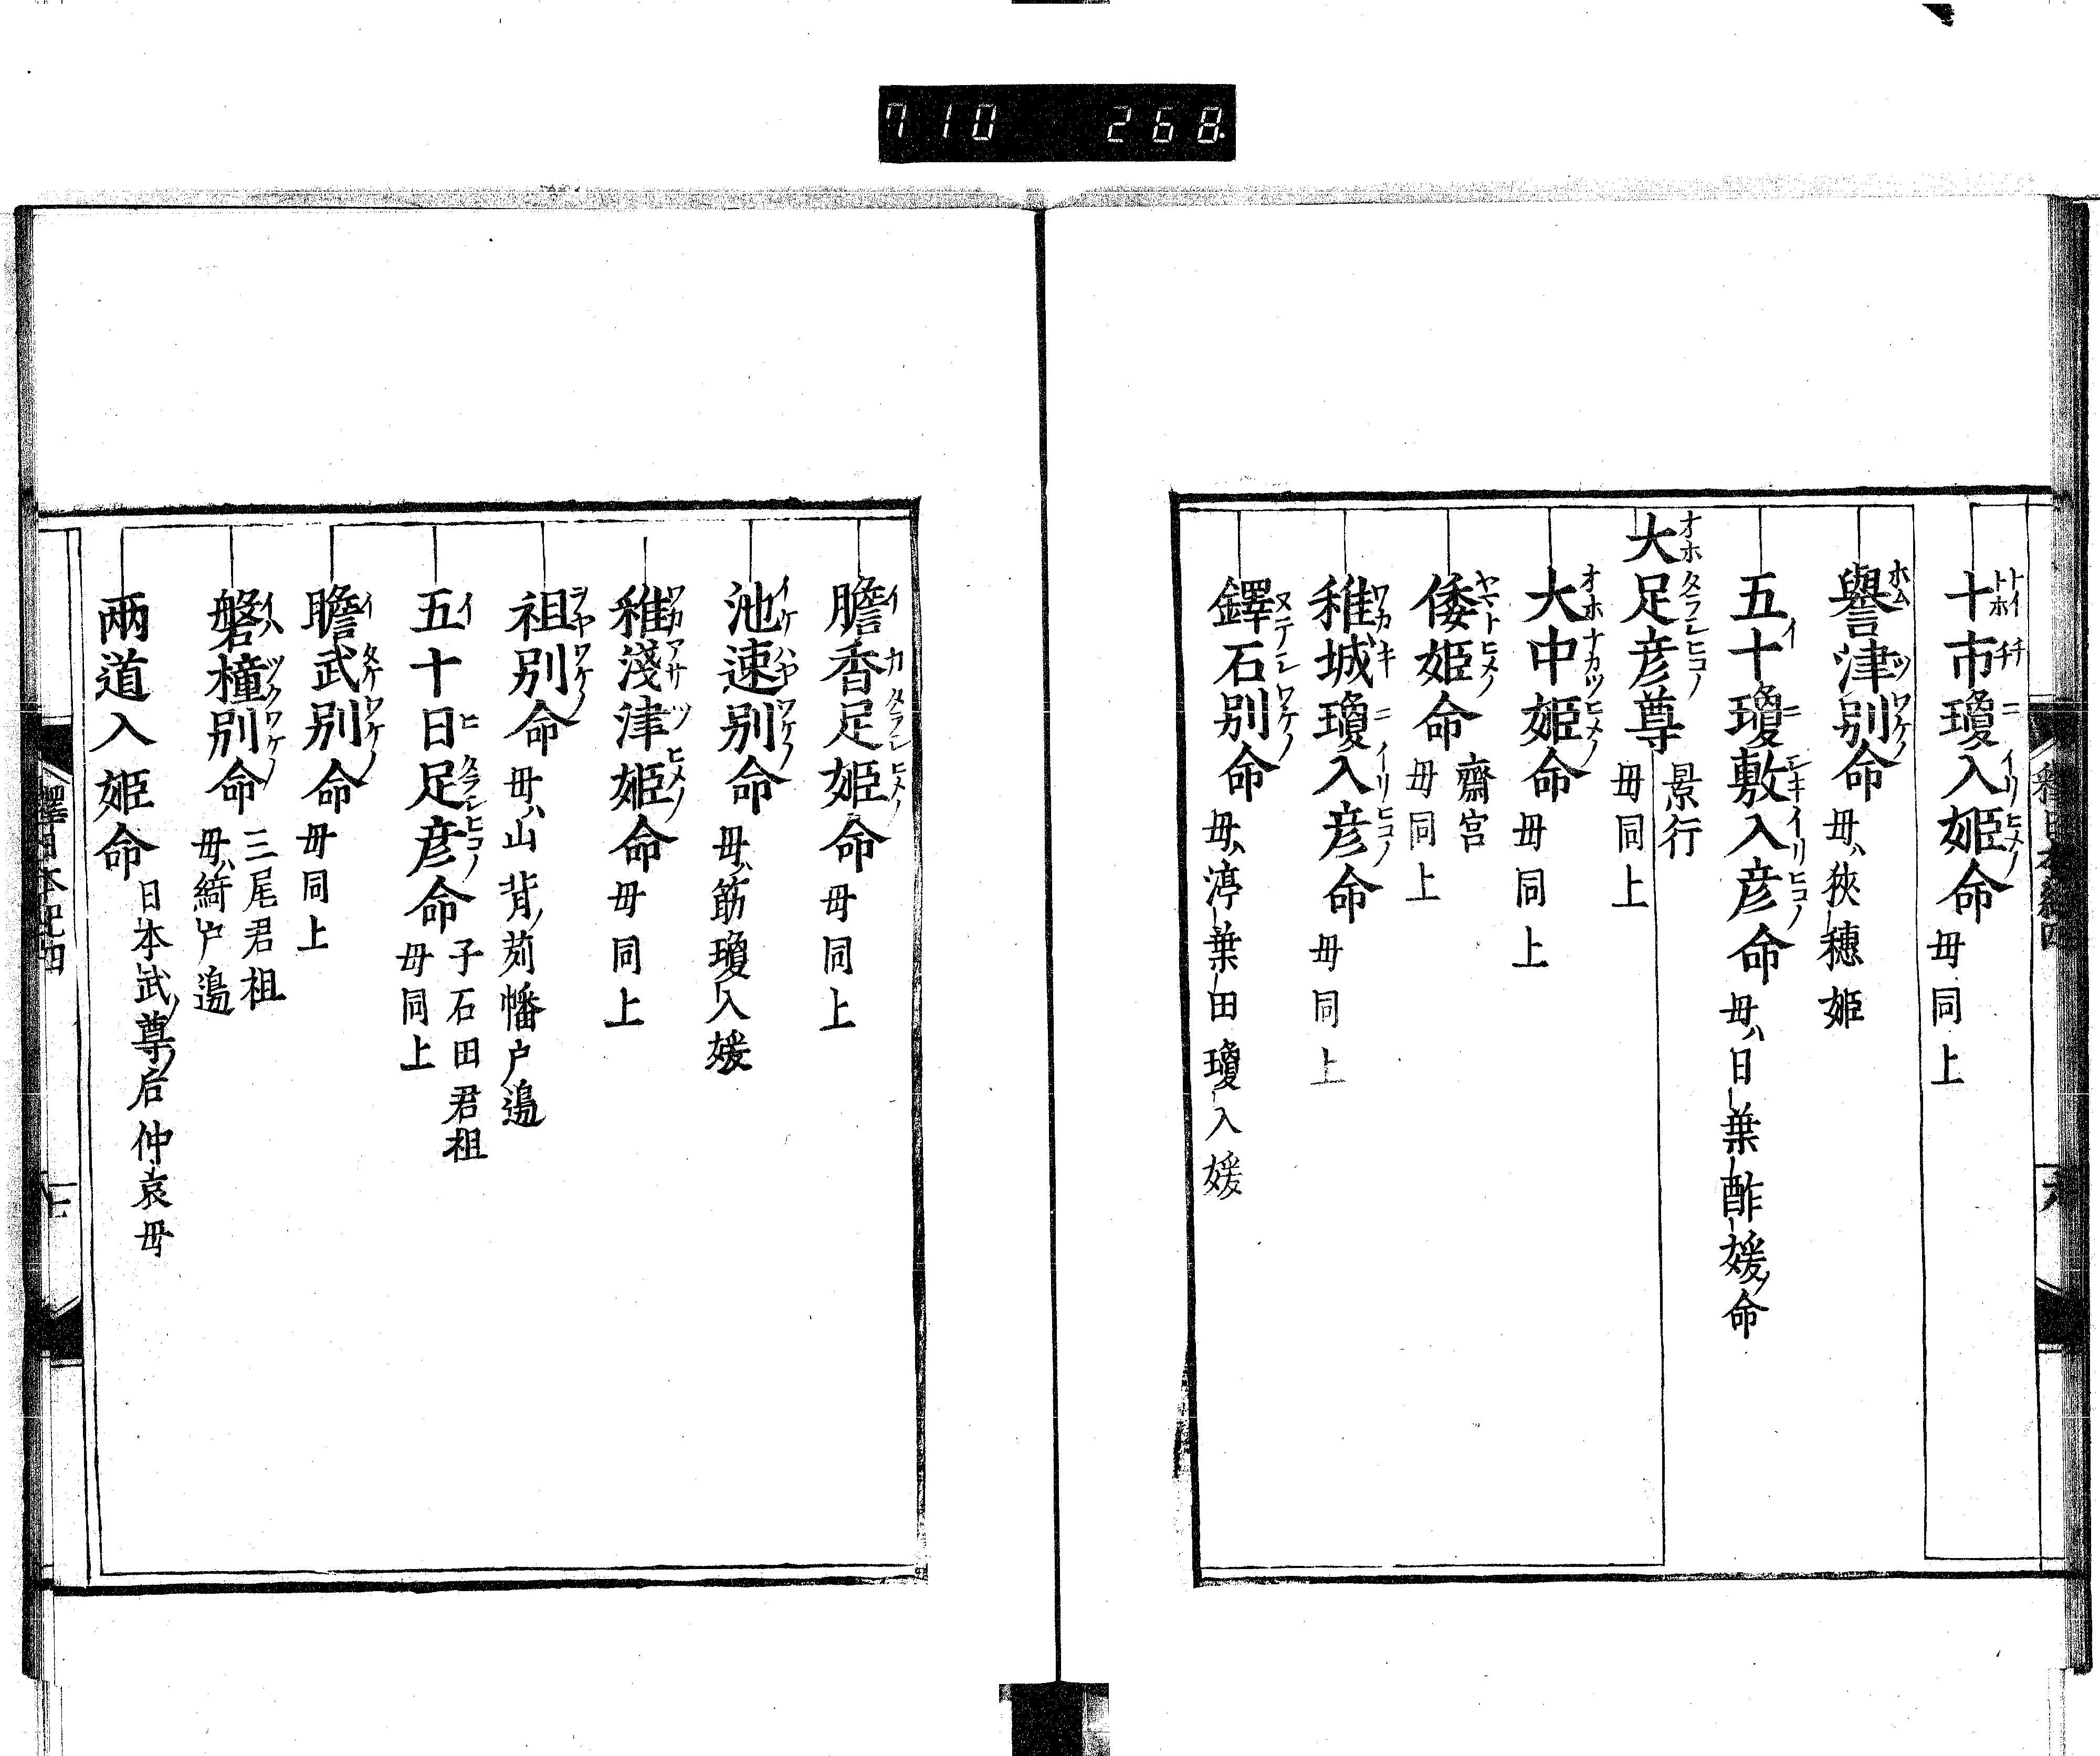 710 268.
十市瓊入姫命 母同上
譽津別命 母ハ狹穗姫
五十瓊敷入彦命 母ハ日葉酢媛ノ命
大足彦尊 景行 母同上
大中姫命 母同上
倭姫命 齋宮 母同上
稚城瓊入彦命 母同上
鐸石別命 母ハ渟葉田瓊入媛
膽香足姫命 母同上
池速別命 母ハ筋瓊入媛
稚淺津姫命 母同上
祖別命 母ハ山背ノ苅幡戸邊
五十日足彦命 子石田君祖 母同上
膽武別命 母同上
磐橦別命 三尾君祖 母ハ綺戸邊
兩道入姫命 日本武ノ尊ノ后仲哀母
釋日本紀四